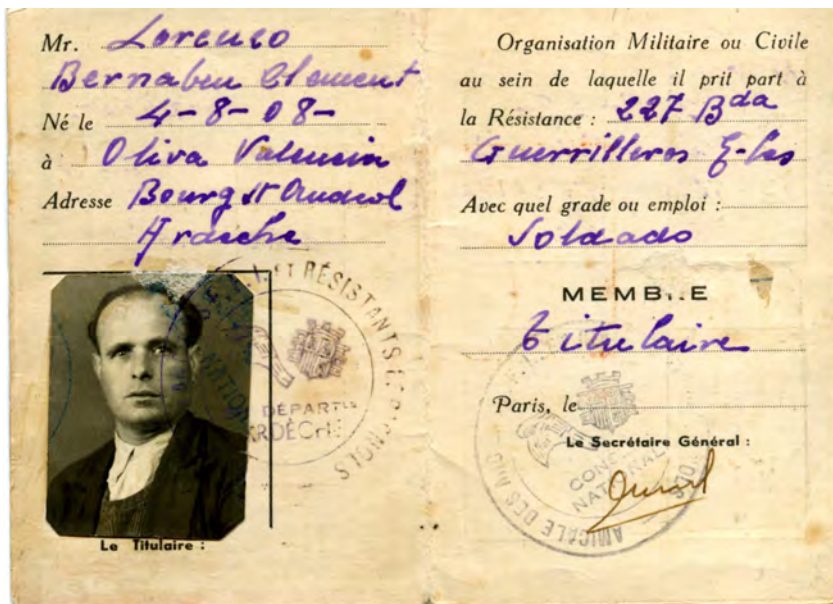 Mr. Lorenzo
Bernabeu Clement
Né le 4-8-08-
à Oliva Valencia
Adresse Bourg St Andeol
Ardeche
ET RÉSISTANTS ESPAGNOLS
NATION
DÉPARTAL
ARDÈCHE
Le Titulaire :
Organisation Militaire ou Civile
au sein de laquelle il prit part à
la Résistance : 227 Bda
Guerrilleros E-les
Avec quel grade ou emploi :
Soldado
MEMBRE
titulaire
Paris, le
Le Secrétaire Général :
CONS
NATIONAL
AMICALE DES